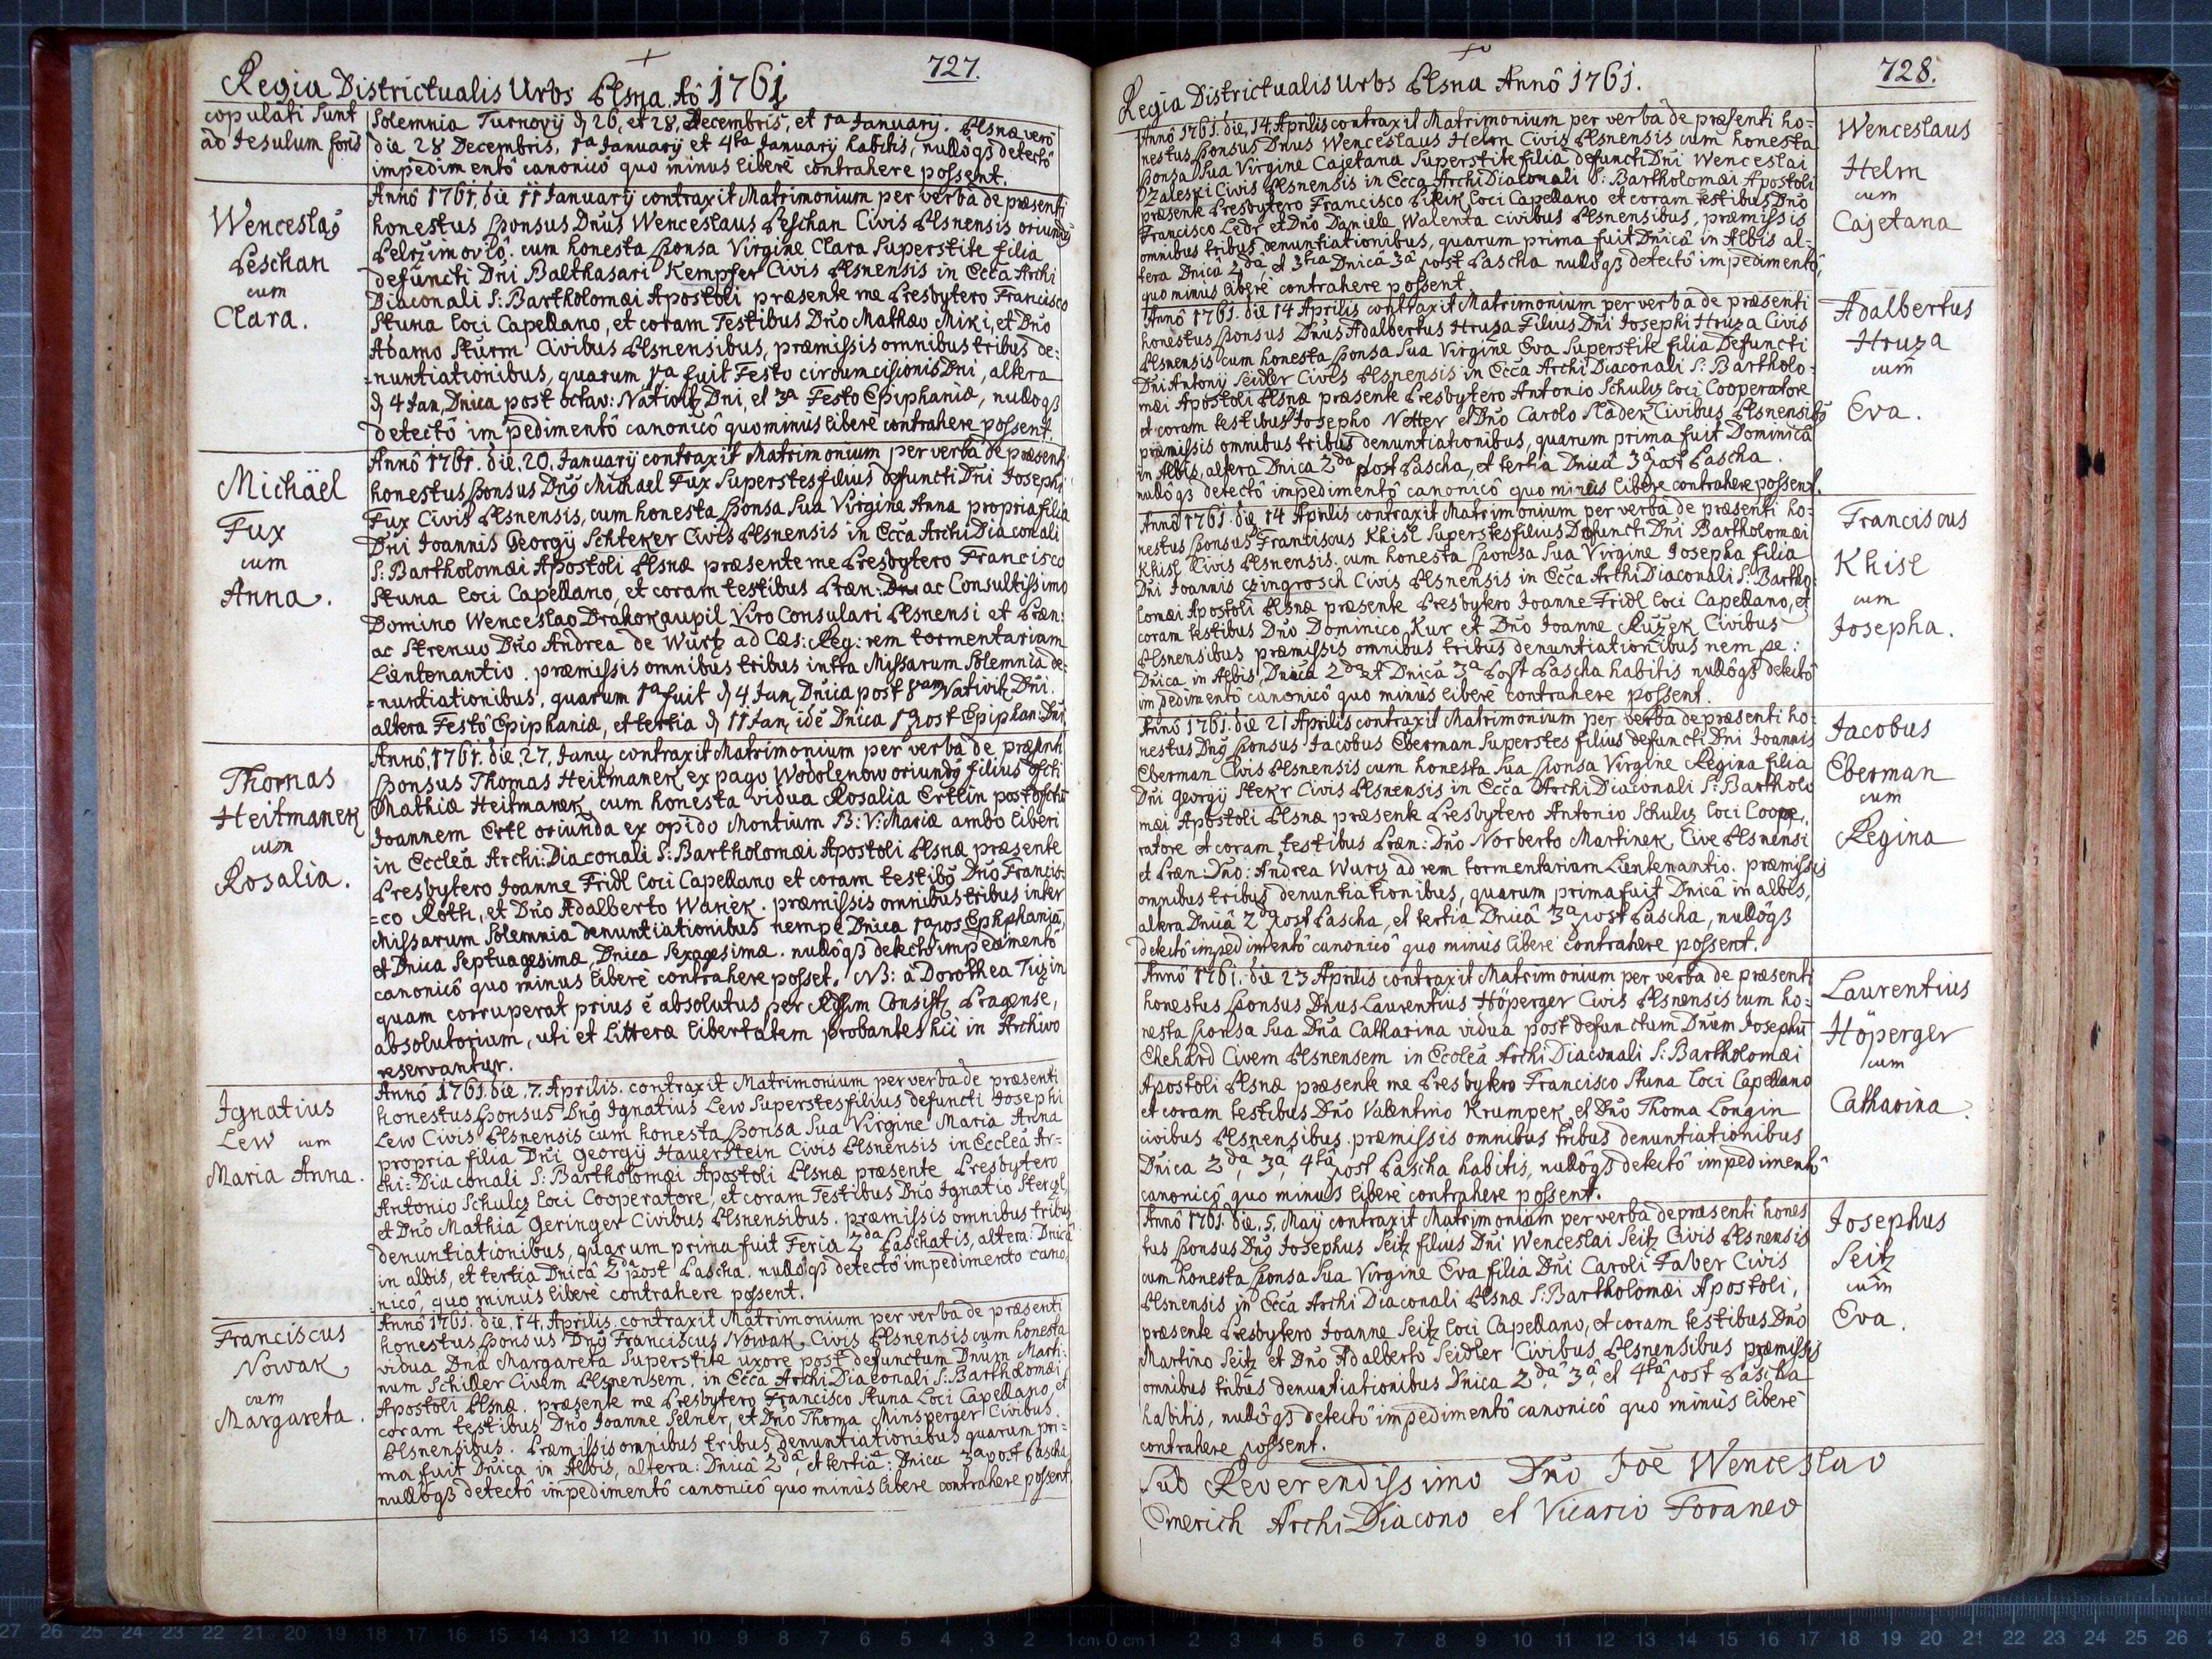 727.
Regia Districtualis Urbs Plsna Aō 1761
copulati sunt
ad Jesulum foris
Solemnia Turnovij d 26, et 28, Decembris, et 1a Januarij. Plsnæ verò
die 28 Decembris, 1a Januarij et 4ta Januarij habitis, nullôqß detectô
impedimentô canonicô quo minus liberè contrahere possent.
Wenceslaq
Peschan
cum
Clara.
Annô 1761. die 11 Januarij contraxit Matrimonium per verba de præsenti
honestus Sponsus Dnūs Wenceslaus Peschan Civis Plsnensis oriundq
Pelrzimovio. cum honesta Sponsa Virgine Clara Superstite filia
defuncti Dni Balthasari Kempfer Civis Plsnensis in Ecca Archi
Diaconali S: Bartholomæi Apostoli præsente me Presbytero Francisco
Stuna loci Capellano, et coram Testibus Dno Mathæo Miki, et Dno
Adamo Sturm Civibus Plsnensibus, præmissis omnibus tribus de-
=nuntiationibus, quarum 1a fuit Festo circumcisionis Dni, altera
d 4 Jan, Dnica post octav: Nativit, Dni, et 3a Festo Epiphaniæ, nulloqß
detectô impedimentô canonicô quominus liberè contrahere possent.
Michäel
Fux
cum
Anna.
Annô 1761. die. 20. Januarij contraxit Matrimonium per verba de præsenti
honestus Sponsus Dnq Michael Fux Superstes filius defuncti Dni Josephi
Fux Civis Plsnensis, cum honesta Sponsa Sua Virgine Anna propria filia
Dni Joannis Georgij Schteker Civis Plsnensis in Ecca Archi Diaconali
S: Bartholomæi Apostoli Plsnæ præsente me Presbytero Francisco
Stuna loci Capellano, et coram testibus Præn: Dno ac Consultissimo
Domino Wenceslao Drahokaupil Viro Consulari Plsnensi et Præn:
ac Strenuo Dno Andrea de Würtz ad Cæs: Reg: rem tormentariam
Lieutenantio. præmissis omnibus tribus intra Missarum Solemnia de-
=nuntiationibus, quarum 1a fuit d 4 Jan, Dnica post 8vam Nativit, Dni.
altera Festô Epiphaniæ, et tertia d 11 Jan, idē Dnica 1a post Epiphan: Dni,
Thomas
Heitmanek
cum
Rosalia.
Annô, 1761. die. 27. Janu, contraxit Matrimonium per verba de præsenti
Sponsus Thomas Heitmanek ex pago Wodolenow oriundq filius dfcti
Mathiæ Heitmanek cum honesta vidua Rosalia Ertlin post dfctū
Joannem Ertl oriunda ex opido Montium B: V: Mariæ ambo liberi
in Ecclea Archi: Diaconali S: Bartholomæi Apostoli Plsnæ præsente
Presbytero Joanne Fridl loci Capellano et coram testibq Dno Francis-
=co Roth, et Dno Adalberto Wanek. præmissis omnibus tribus inter
Missarum Solemnia denuntiationibus nempe Dnica 1a pos Ephphaniā,
et Dnica Septuagesimæ, Dnica Sexagesimæ. nullôqß detectô impedimentô
canonicô quo minus liberè contrahere posset. NB: à Dorothea Tizin
quam corruperat prius è absolutus per Rssm Consist, Pragense,
absolutorium, uti et Litteræ libertatem probantes hic in Archivo
reservantur.
Ignatius
Lew cum
Maria Anna.
Annô 1761. die. 7. Aprilis. contraxit Matrimonium per verba de præsenti
honestus Sponsus Dnq Ignatius Lew Superstes filius defuncti Josephi
Lew Civis Plsnensis cum honesta Sponsa Sua Virgine Maria Anna
propria filia Dni Georgij Hauerstein Civis Plsnensis in Ecclea Ar-
chi= Diaconali S: Bartholomæi Apostoli Plsnæ præsente Presbytero
Antonio Schulz loci Cooperatore, et coram Testibus Dno Ignatio Stercyl,
et Dno Mathia Geringer Civibus Plsnensibus. præmissis omnibus tribus
denuntiationibus, quarum prima fuit Feria 2da Paschatis, altera: Dnicâ
in albis, et tertia Dnicâ 2da post Pascha. nullôqß detectô impedimento cano-
=nicô, quo minus liberè contrahere possent.
Franciscus
Nowak
cum
Margareta.
Annô 1761. die. 14. Aprilis. contraxit Matrimonium per verba de præsenti
honestus Sponsus Dnq Franciscus Nowak Civis Plsnensis cum honesta
vidua Dna Margareta Superstite uxore post defunctum Dnum Marti-
num Schiller Civem Plsnensem. in Ecca Archi Diaconali S: Bartholomæi
Apostoli Plsnæ. præsente me Presbytero Francisco Stuna Loci Capellano, et
coram testibus Dno Joanne Selner, et Dno Thoma Minsperger Civibus
Plsnensibus. Præmissis omnibus tribus denuntiationibus quarum pri-
ma fuit Dnica in Albis, altera: Dnicâ 2dâ, et tertiâ: Dnica 3a post Pascha
nullôqß detectô impedimentô canonicô quo minus liberè contrahere possent.
728.
Regia Districtualis Urbs Plsna Annô 1761.
Annô 1761. die, 14. Aprilis contraxit Matrimonium per verba de præsenti ho-
nestus Sponsus Dnus Wenceslaus Helm Civis Plsnensis cum honesta
Sponsa Sua Virgine Cajetana Superstite filia defuncti Dni Wenceslai
Zaleski Civis Plsnensis in Ecca Archi Diaconali S: Bartholomæi Apostoli
præsente Presbytero Francisco Pikik Loci Capellano et coram testibus Dno
Francisco Ledr et Dno Daniele Walenta civibus Plsnensibus, præmissis
omnibus tribus denuntiationibus, quarum prima fuit Dnicâ in Albis al-
tera Dnica 2dâ, et 3tia Dnicâ 3â post Pascha nullôqß detectô impedimentô,
quo minus liberè contrahere possent.
Wenceslaus
Helm
cum
Cajetana
Annô 1761. die 14 Aprilis contraxit Matrimonium per verba de præsenti
honestus Sponsus Dnus Adalbertus Hruza Filius Dni Josephi Hruza Civis
Plsnensis cum honesta Sponsa Sua Virgine Eva Superstite filia Defuncti
Dni Antonij Seidler Civis Plsnensis in Ecca Archi Diaconali S: Bartholo-
mæi Apostoli Plsnæ præsente Presbytero Antonio Schulz loci Cooperatore
et coram testibus Josepho Netter et Dno Carolo Sladek Civibus Plsnensibq
præmissis omnibus tribus denuntiationibus, quarum prima fuit Dominicâ
in Albis, altera Dnica 2da post Pascha, et tertia Dnicâ 3a post Pascha.
nullôqß detectô impedimentô canonicô quo minus liberè contrahere possent.
Adalbertus
Hruza
cum
Eva.
Annô 1761. die 14 Aprilis contraxit Matrimonium per verba de præsenti ho-
nestus Sponsus Franciscus Khisl Superstes filius Defuncti Dni Bartholomæi
Khisl Civis Plsnensis. cum honesta Sponsa Sua Virgine Josepha filia
Dni Joannis Czingrosch Civis Plsnensis in Ecca Archi Diaconali S: Bartho-
lomæi Apostoli Plsnæ præsente Presbytero Joanne Fridl loci Capellano, et
coram testibus Dno Dominico Kur et Dno Joanne Ruzek Civibus
Plsnensibus præmissis omnibus tribus denuntiationibus nem pe:
Dnica in Albis, Dnica 2da et Dnicâ 3a Post Pascha habitis nullôqß detectô
impedimentô canonicô quo minus liberè contrahere possent.
Franciscus
Khisl
cum
Josepha.
Annô 1761. die 21 Aprilis contraxit Matrimonium per verba de præsenti ho-
nestus Dnq Sponsus Jacobus Eberman Superstes filius defuncti Dni Joannis
Eberman Civis Plsnensis cum honesta Sua Sponsa Virgine Regina filia
Dni Georgij Stekr Civis Plsnensis in Ecca Archi Diaconali S: Bartholo
mæi Apostoli Plsnæ præsente Presbytero Antonio Schulz loci Coope,
ratore et coram testibus Præn: Dno Norberto Martinek Cive Plsnensi
et Præn: Dno: Andrea Wurz ad rem tormentariam Lieutenantio. præmissis
omnibus tribus denuntiationibus, quarum prima fuit Dnicâ in albis,
altera Dnicâ 2da post Pascha, et tertia Dnicâ 3a post Pascha, nullôqß
detectô impedimentô canonicô quo minus liberè contrahere possent.
Jacobus
Eberman
cum
Regina
Annô 1761. die 23 Aprilis contraxit Matrimonium per verba de præsenti
honestus Sponsus Dnus Laurentius Höperger Civis Plsnensis cum ho-
nesta Sponsa Sua Dna Catharina vidua post defunctum Dnum Josephū
Ekehard Civem Plsnensem in Ecclea Archi Diaconali S: Bartholomæi
Apostoli Plsnæ præsente me Presbytero Francisco Stuna loci Capellano
et coram testibus Dno Valentino Krumpek, et Dno Thoma Longin
civibus Plsnensibus. præmissis omnibus tribus denuntiationibus
Dnica 2dâ, 3â, 4tâ post Pascha habitis, nullôqß detectô impedimentô
canonicô quo minus liberè contrahere possent.
Laurentius
Höperger
cum
Catharina.
Annô 1761. die. 5. Maij contraxit Matrimonium per verba de præsenti hones
tus Sponsus Dnq Josephus Seitz filius Dni Wenceslai Seitz Civis Plsnensis
cum honesta Sponsa Sua Virgine Eva filia Dni Caroli Faber Civis
Plsnensis in Ecca Archi Diaconali Plsnæ S: Bartholomæi Apostoli,
præsente Presbytero Joanne Seitz loci Capellano, et coram testibus Dno
Martino Seitz et Dno Adalberto Seidler Civibus Plsnensibus præmissis
omnibus tribus denuntiationibus Dnica 2dâ, 3â, et 4tâ post Pascha
habitis, nullôqß detectô impedimentô canonicô quo minus liberè
contrahere possent.
Josephus
Seitz
cum
Eva.
Sub Reverendissimo Dno Joē Wenceslao
Emerich Archi Diacono et Vicario Foraneo
27 26 25 24 23 22 21 20 19 18 17 16 15 14 13 12 11 10 9 8 7 6 5 4 3 2 1 cm 0 cm 1 2 3 4 5 6 7 8 9 10 11 12 13 14 15 16 17 18 19 20 21 22 23 24 25 26